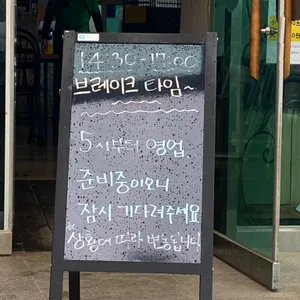 14:30-17:00
브레이크 타임~
5시부터 영업.
준비중이오니
잠시 기다려주세요
상황에 따라 변동됩니다